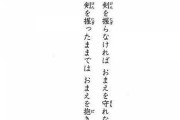 剣を握らなければ おまえを守れな
剣を握ったままでは おまえを抱き